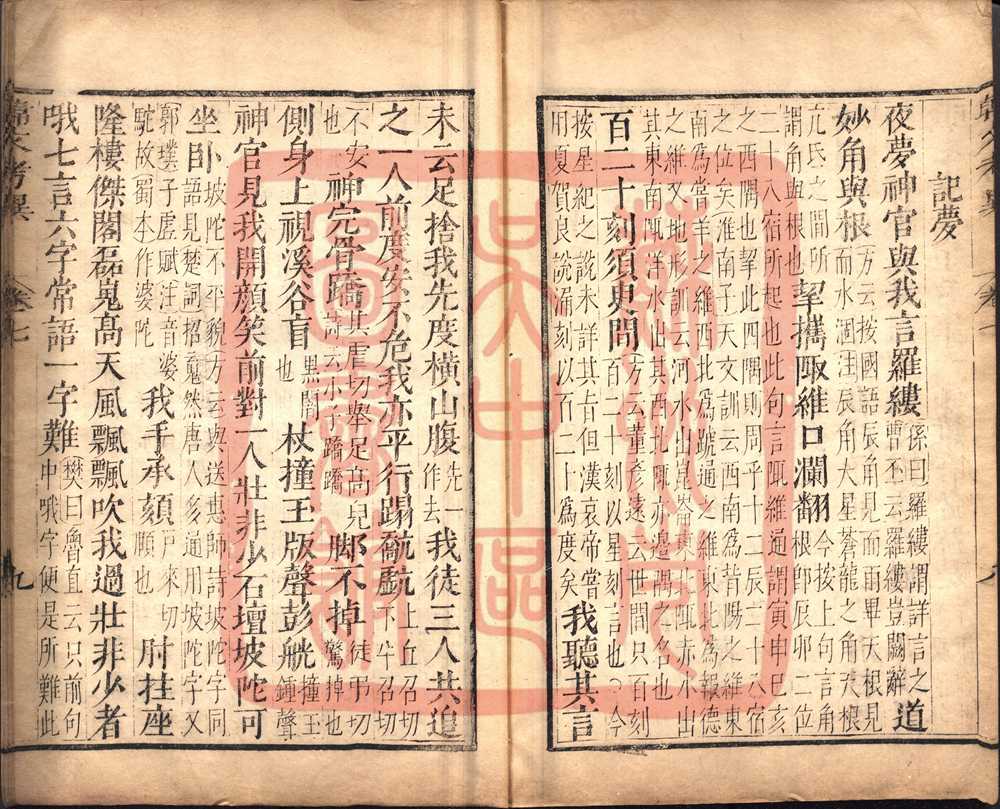 記夢
夜夢神官與我言羅縷
孫曰羅縷謂詳言之
曹丕云羅縷豈闕辭
道
妙角與根
方云按國語辰角見而雨畢天根見
而水涸注辰角大星蒼龍之角天根
亢氐之間
謂角與根也
挈攜陬維口瀾翻
今按上句言角
根卽辰卯二位
二十八宿所起也此句言陬維通謂寅申巳亥
之西隅也挈此四隅則周乎十二辰二十八宿
之位矣
淮南子天文訓云西南爲背陽之維東
南爲常羊之維西北爲蹏通之維東北爲報德
之維又地形訓云河水出崑崙東北陬赤水出
其東南陬洋水出其西北陬亦邉隅之名也
百二十刻須臾間
方云董彥遠云世間只百刻
百二十刻以星刻言也
今
按星紀之說未詳其旨但漢哀帝嘗
用夏賀良說漏刻以百二十爲度矣
我聽其言
未云足捨我先度橫山腹
先一
作去
我徒三人共追
之一人前度安不危我亦平行蹋𣨼𣦋
上丘召切
下牛召切
神完骨蹻
其虐切舉足高皃
詩云小子蹻蹻
脚不掉
徒弔切
驚掉也
不安
也
側身上視溪谷盲
黑闇
也
杖撞玉版聲彭觥
撞玉
鍾聲
神官見我開顔笑前對一人壯非少石壇坡陀可
坐卧
坡陀不平貌
方云與送惠師詩坡陀字同
語見楚詞招䰟然唐人多通用坡陀字又
郭璞子虛賦注
音婆
陀故
蜀本
作婆陀
我手承頦
戸來切
頤也
肘拄座
隆樓傑閣磊嵬高天風飄飄吹我過壯非少者
哦七言六字常語一字難
樊曰魯直云只前句
中哦字便是所難此
韓文考異
卷七
九